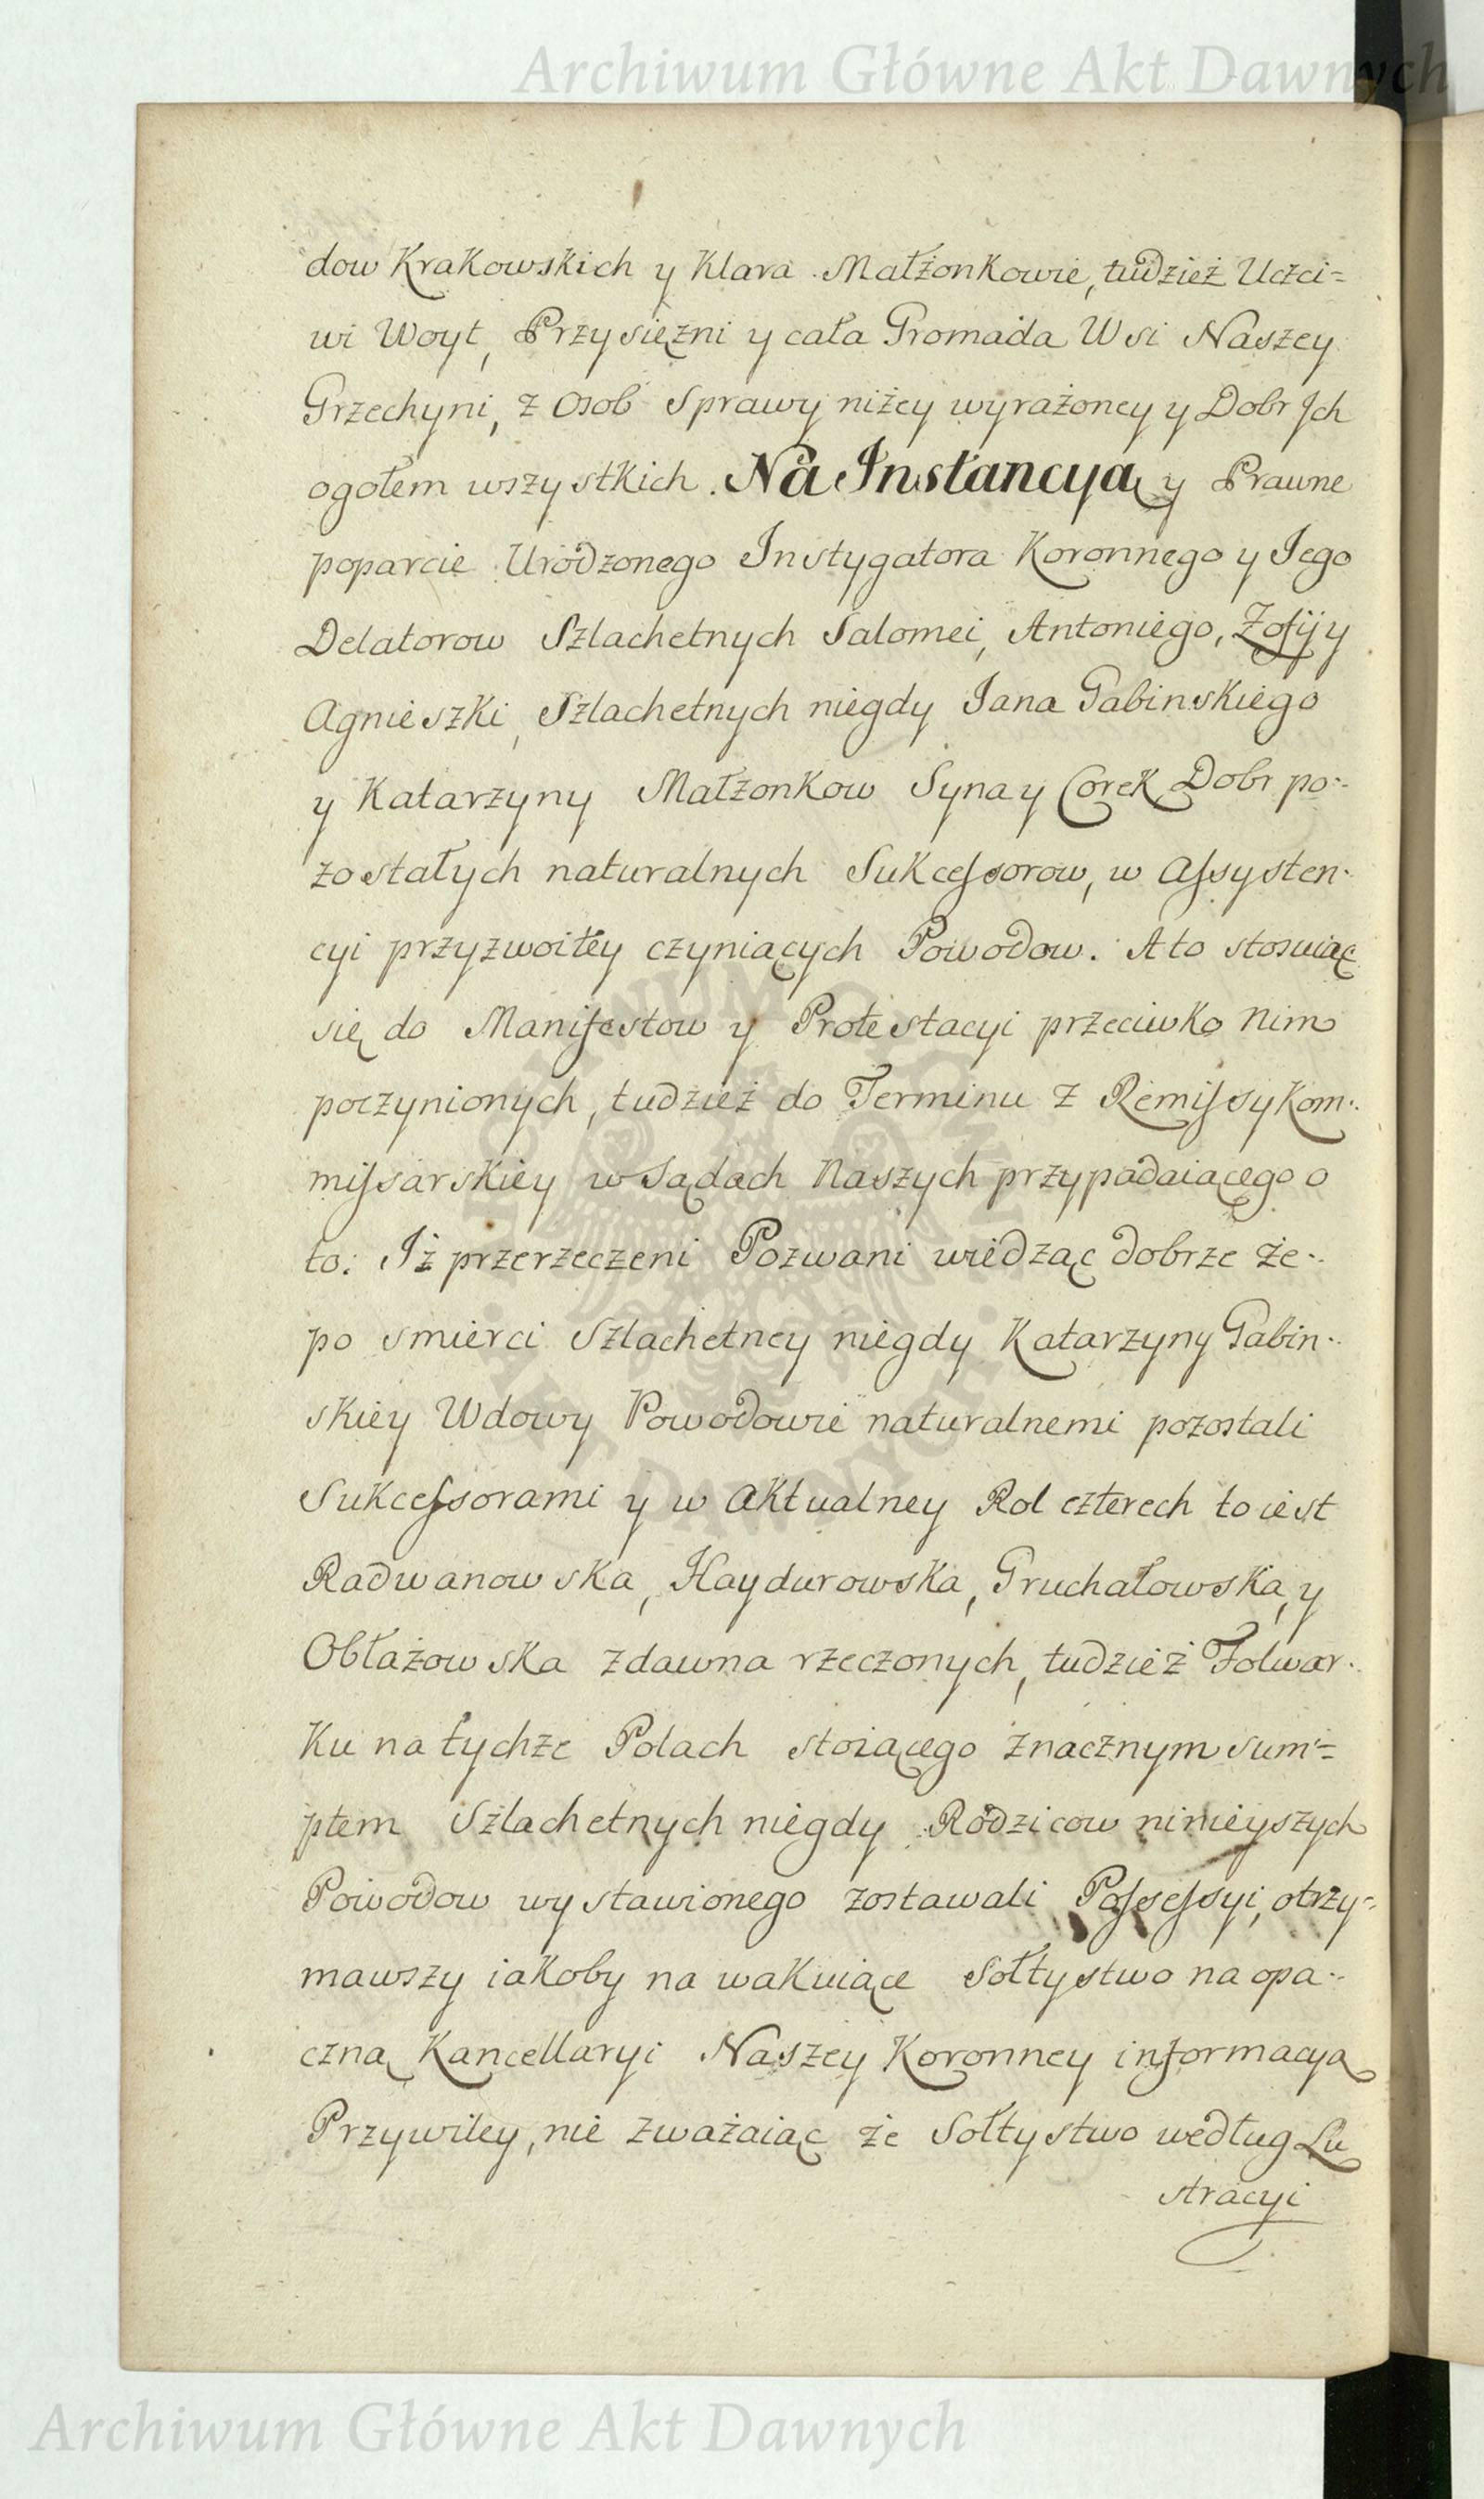 Archiwum Główne Akt Dawnych
dow Krakowskich y Klara Małżonkowie, tudzież Uczci=
wi Woyt, Przysięzni y cała Gromada Wsi Naszey
Grzechyni, z Osob Sprawy niżey wyrażoney y Dobr Jch
ogołem wszystkich. Na Instancyą y Prawne
poparcie Urodzonego Instygatora Koronnego y Jego
Delatorow Szlachetnych Salomei, Antoniego, Zofij y
Agnieszki, Szlachetnych niegdy Jana Gabinskiego
y Katarzyny Małzonkow Syna y Corek Dobr po-
zostałych naturalnych Sukcessorow, w Assysten-
cyi przyzwoitey czyniących Powodow. A to stosuiąc
się do Manifestow y Protestacyi przeciwko nim
poczynionych, tudzież do Terminu z Remissy Kom-
missarskiey w Sądach Naszych przypadaiącego o
to: Iż przerzeczeni Pozwani wiedząc dobrze że-
po smierci Szlachetney niegdy Katarzyny Gabin-
skiey Wdowy Powodowie naturalnemi pozostali
Sukcessorami y w aktualney Rol czterech to iest
Radwanowska, Haydurowska, Gruchałowska, y
Obłażowska zdawna rzeczonych, tudzież Folwar-
ku na tychże Polach stoiącego znacznym sum=
ptem Szlachetnych niegdy Rodzicow ninieyszych
Powodow wystawionego zostawali Possessyi, otrzy=
mawszy iakoby na wakuiące Sołtystwo na opa-
czną Kancellaryi Naszey Koronney informacyą
Przywiley, nie zważaiąc że Sołtystwo według Lu
stracyi
Archiwum Główne Akt Dawnych